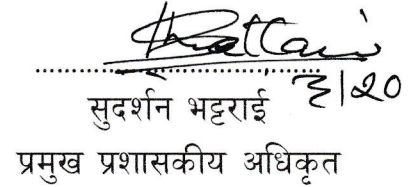 ६/२०
सुदर्शन भट्टराई
प्रमुख प्रशासकीय अधिकृत